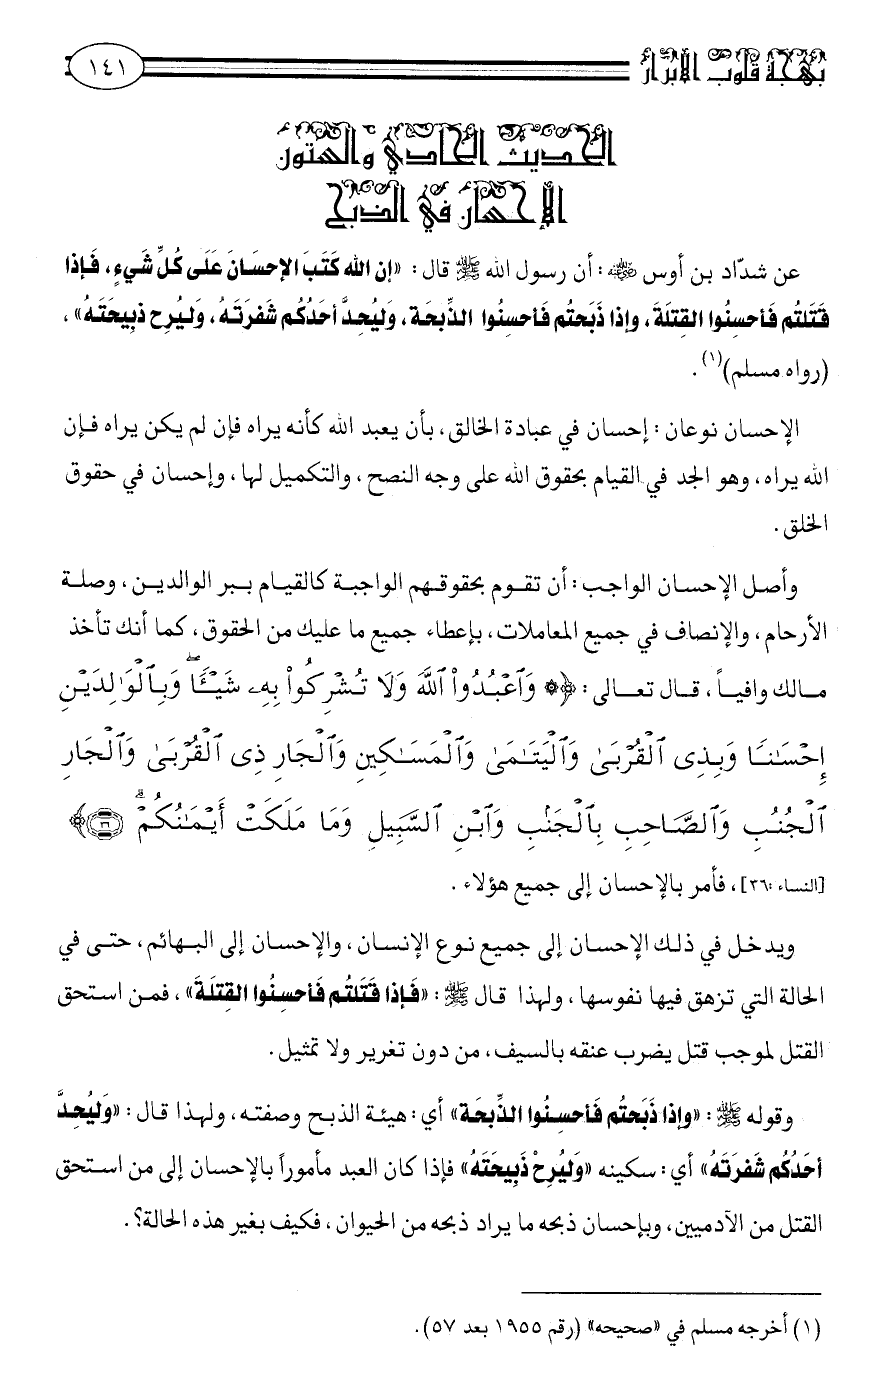 بهجة قلوب الأبرار
١٤١
الحديث الحادي والستون
الإحسان في الذبح
عن شدّاد بن أوس رضي الله عنه: أن رسول الله ﷺ قال: «إن الله كَتَبَ الإحسَانَ عَلَى كُلِّ شَيءٍ، فَإذا
قَتَلتُم فَأحسِنُوا القِتلَةَ، وإذا ذَبَحتُم فَأحسِنُوا الذِّبحَة، وَليُحِدَّ أحَدُكُم شَفرَتَهُ، وَليُرِح ذبِيحَتَهُ»،
(رواه مسلم)(١).
الإحسان نوعان: إحسان في عبادة الخالق، بأن يعبد الله كأنه يراه فإن لم يكن يراه فإن
الله يراه، وهو الجد في القيام بحقوق الله على وجه النصح، والتكميل لها، وإحسان في حقوق
الخلق.
وأصل الإحسان الواجب: أن تقوم بحقوقهم الواجبة كالقيام ببر الوالدين، وصلة
الأرحام، والإنصاف في جميع المعاملات، بإعطاء جميع ما عليك من الحقوق، كما أنك تأخذ
مالك وافياً، قال تعالى: ﴿۞ وَٱعْبُدُوا۟ ٱللَّهَ وَلَا تُشْرِكُوا۟ بِهِۦ شَيْـًٔا ۖ وَبِٱلْوَٰلِدَيْنِ
إِحْسَـٰنًا وَبِذِى ٱلْقُرْبَىٰ وَٱلْيَتَـٰمَىٰ وَٱلْمَسَـٰكِينِ وَٱلْجَارِ ذِى ٱلْقُرْبَىٰ وَٱلْجَارِ
ٱلْجُنُبِ وَٱلصَّاحِبِ بِٱلْجَنۢبِ وَٱبْنِ ٱلسَّبِيلِ وَمَا مَلَكَتْ أَيْمَـٰنُكُمْ ۗ ٣٦﴾
[النساء: ٣٦]، فأمر بالإحسان إلى جميع هؤلاء.
ويدخل في ذلك الإحسان إلى جميع نوع الإنسان، والإحسان إلى البهائم، حتى في
الحالة التي تزهق فيها نفوسها، ولهذا قال ﷺ: «فَإذا قَتَلتُم فَأحسِنُوا القِتلَةَ»، فمن استحق
القتل لموجب قتل يضرب عنقه بالسيف، من دون تغرير ولا تمثيل.
وقوله ﷺ: «وإذا ذَبَحتُم فَأحسِنُوا الذِّبحَة» أي: هيئة الذبح وصفته، ولهذا قال: «وَليُحِدَّ
أحَدُكُم شَفرَتَهُ» أي: سكينه «وَليُرِحْ ذَبِيحَتَهُ» فإذا كان العبد مأموراً بالإحسان إلى من استحق
القتل من الآدميين، وبإحسان ذبحه ما يراد ذبحه من الحيوان، فكيف بغير هذه الحالة؟.
(١) أخرجه مسلم في «صحيحه» (رقم ١٩٥٥ بعد ٥٧).